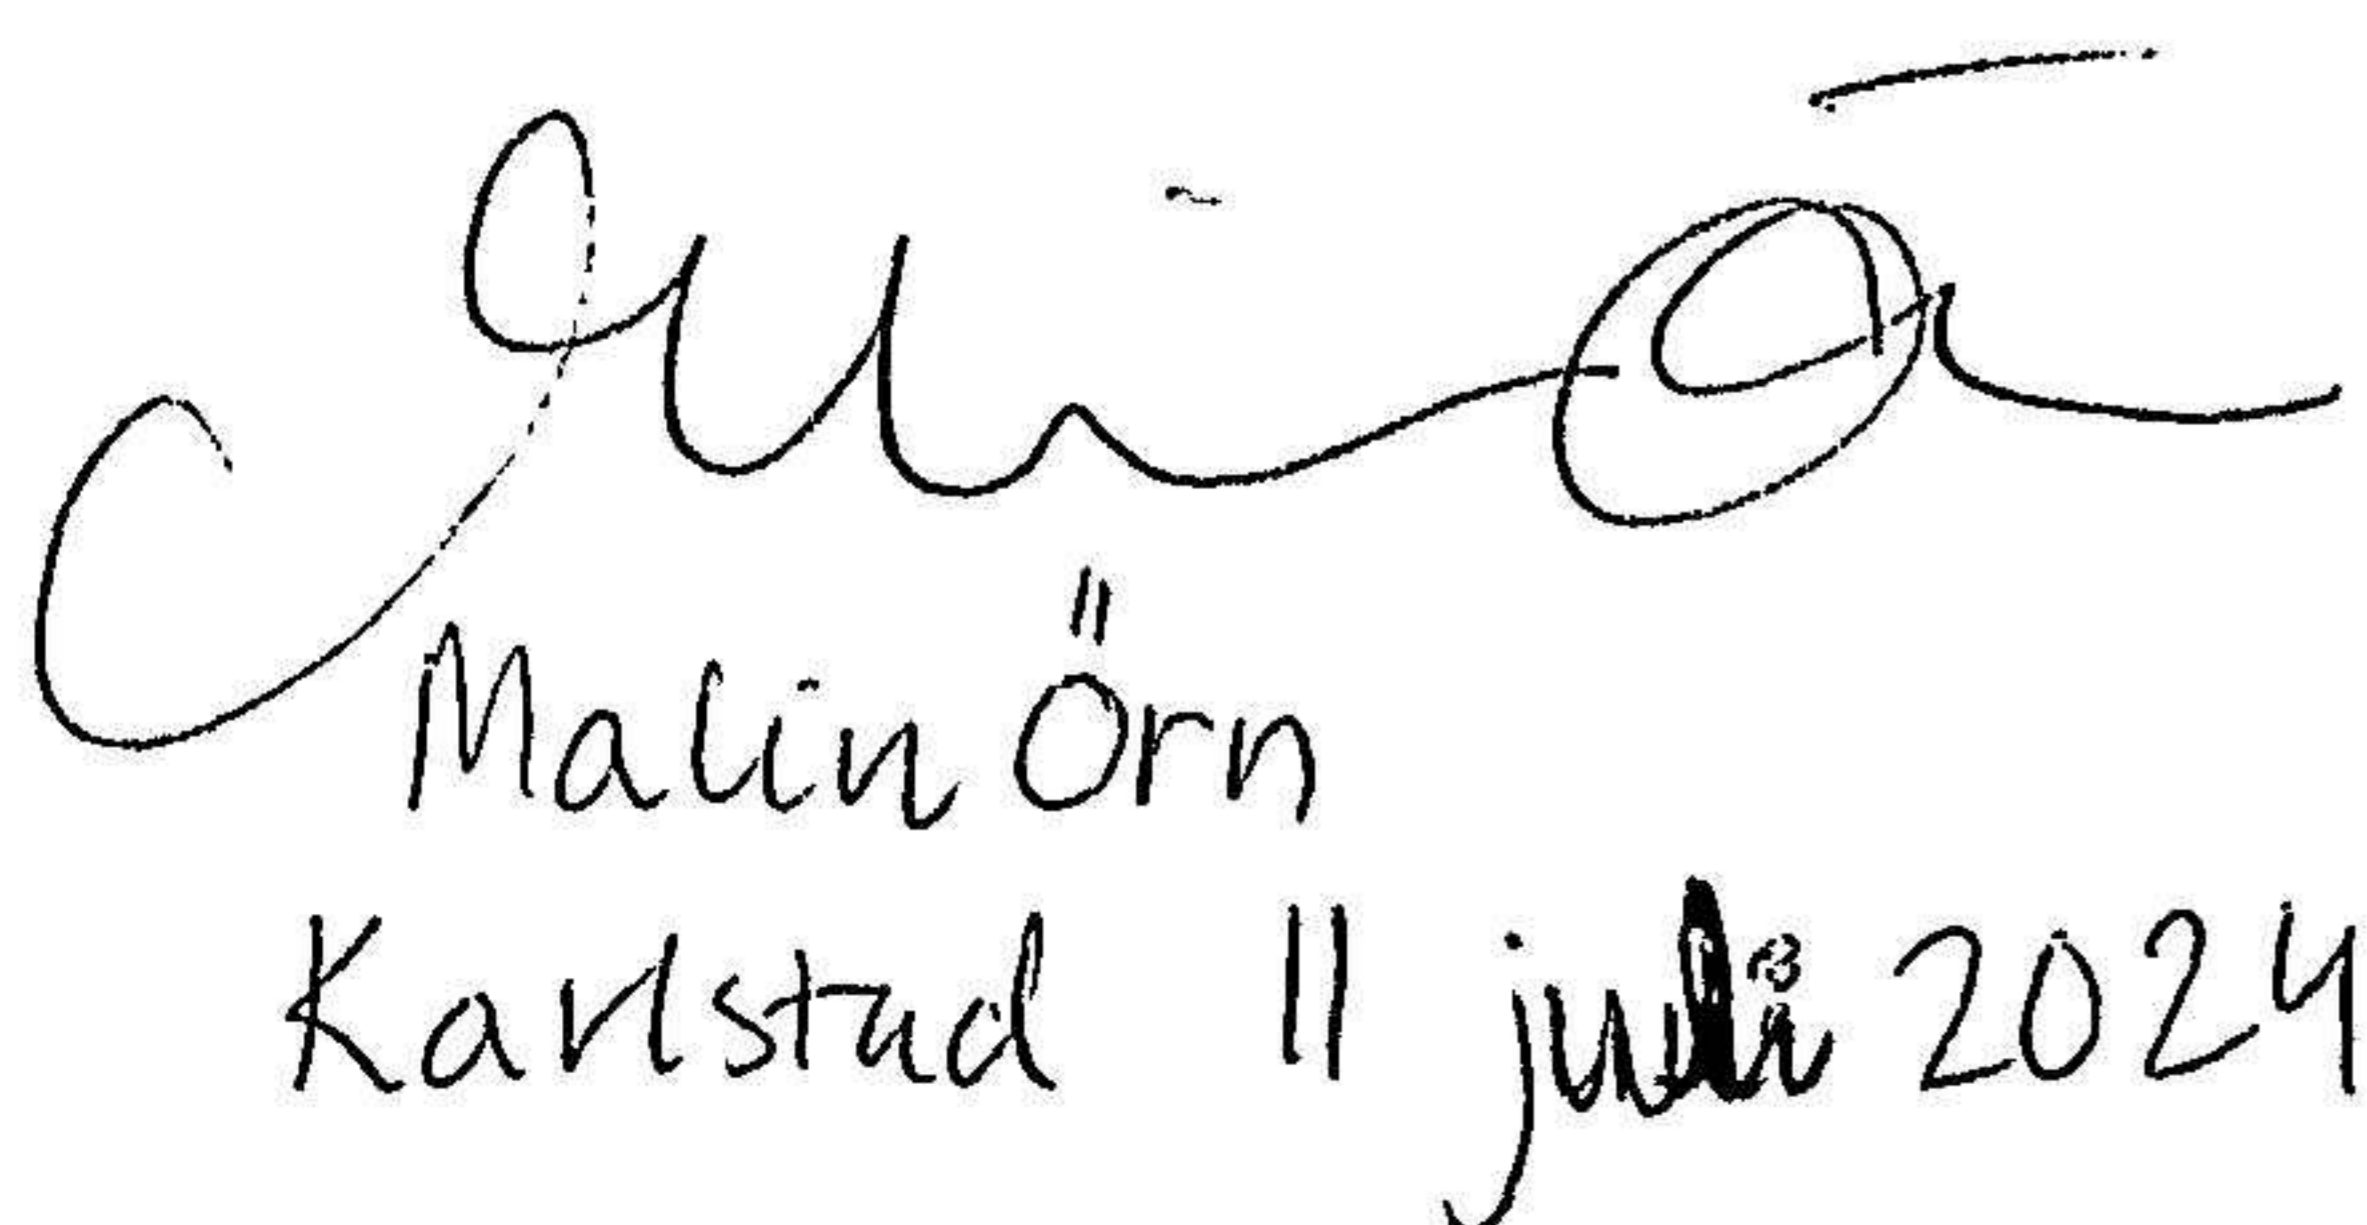 Malin Örn
Karlstad 11 juli 2024